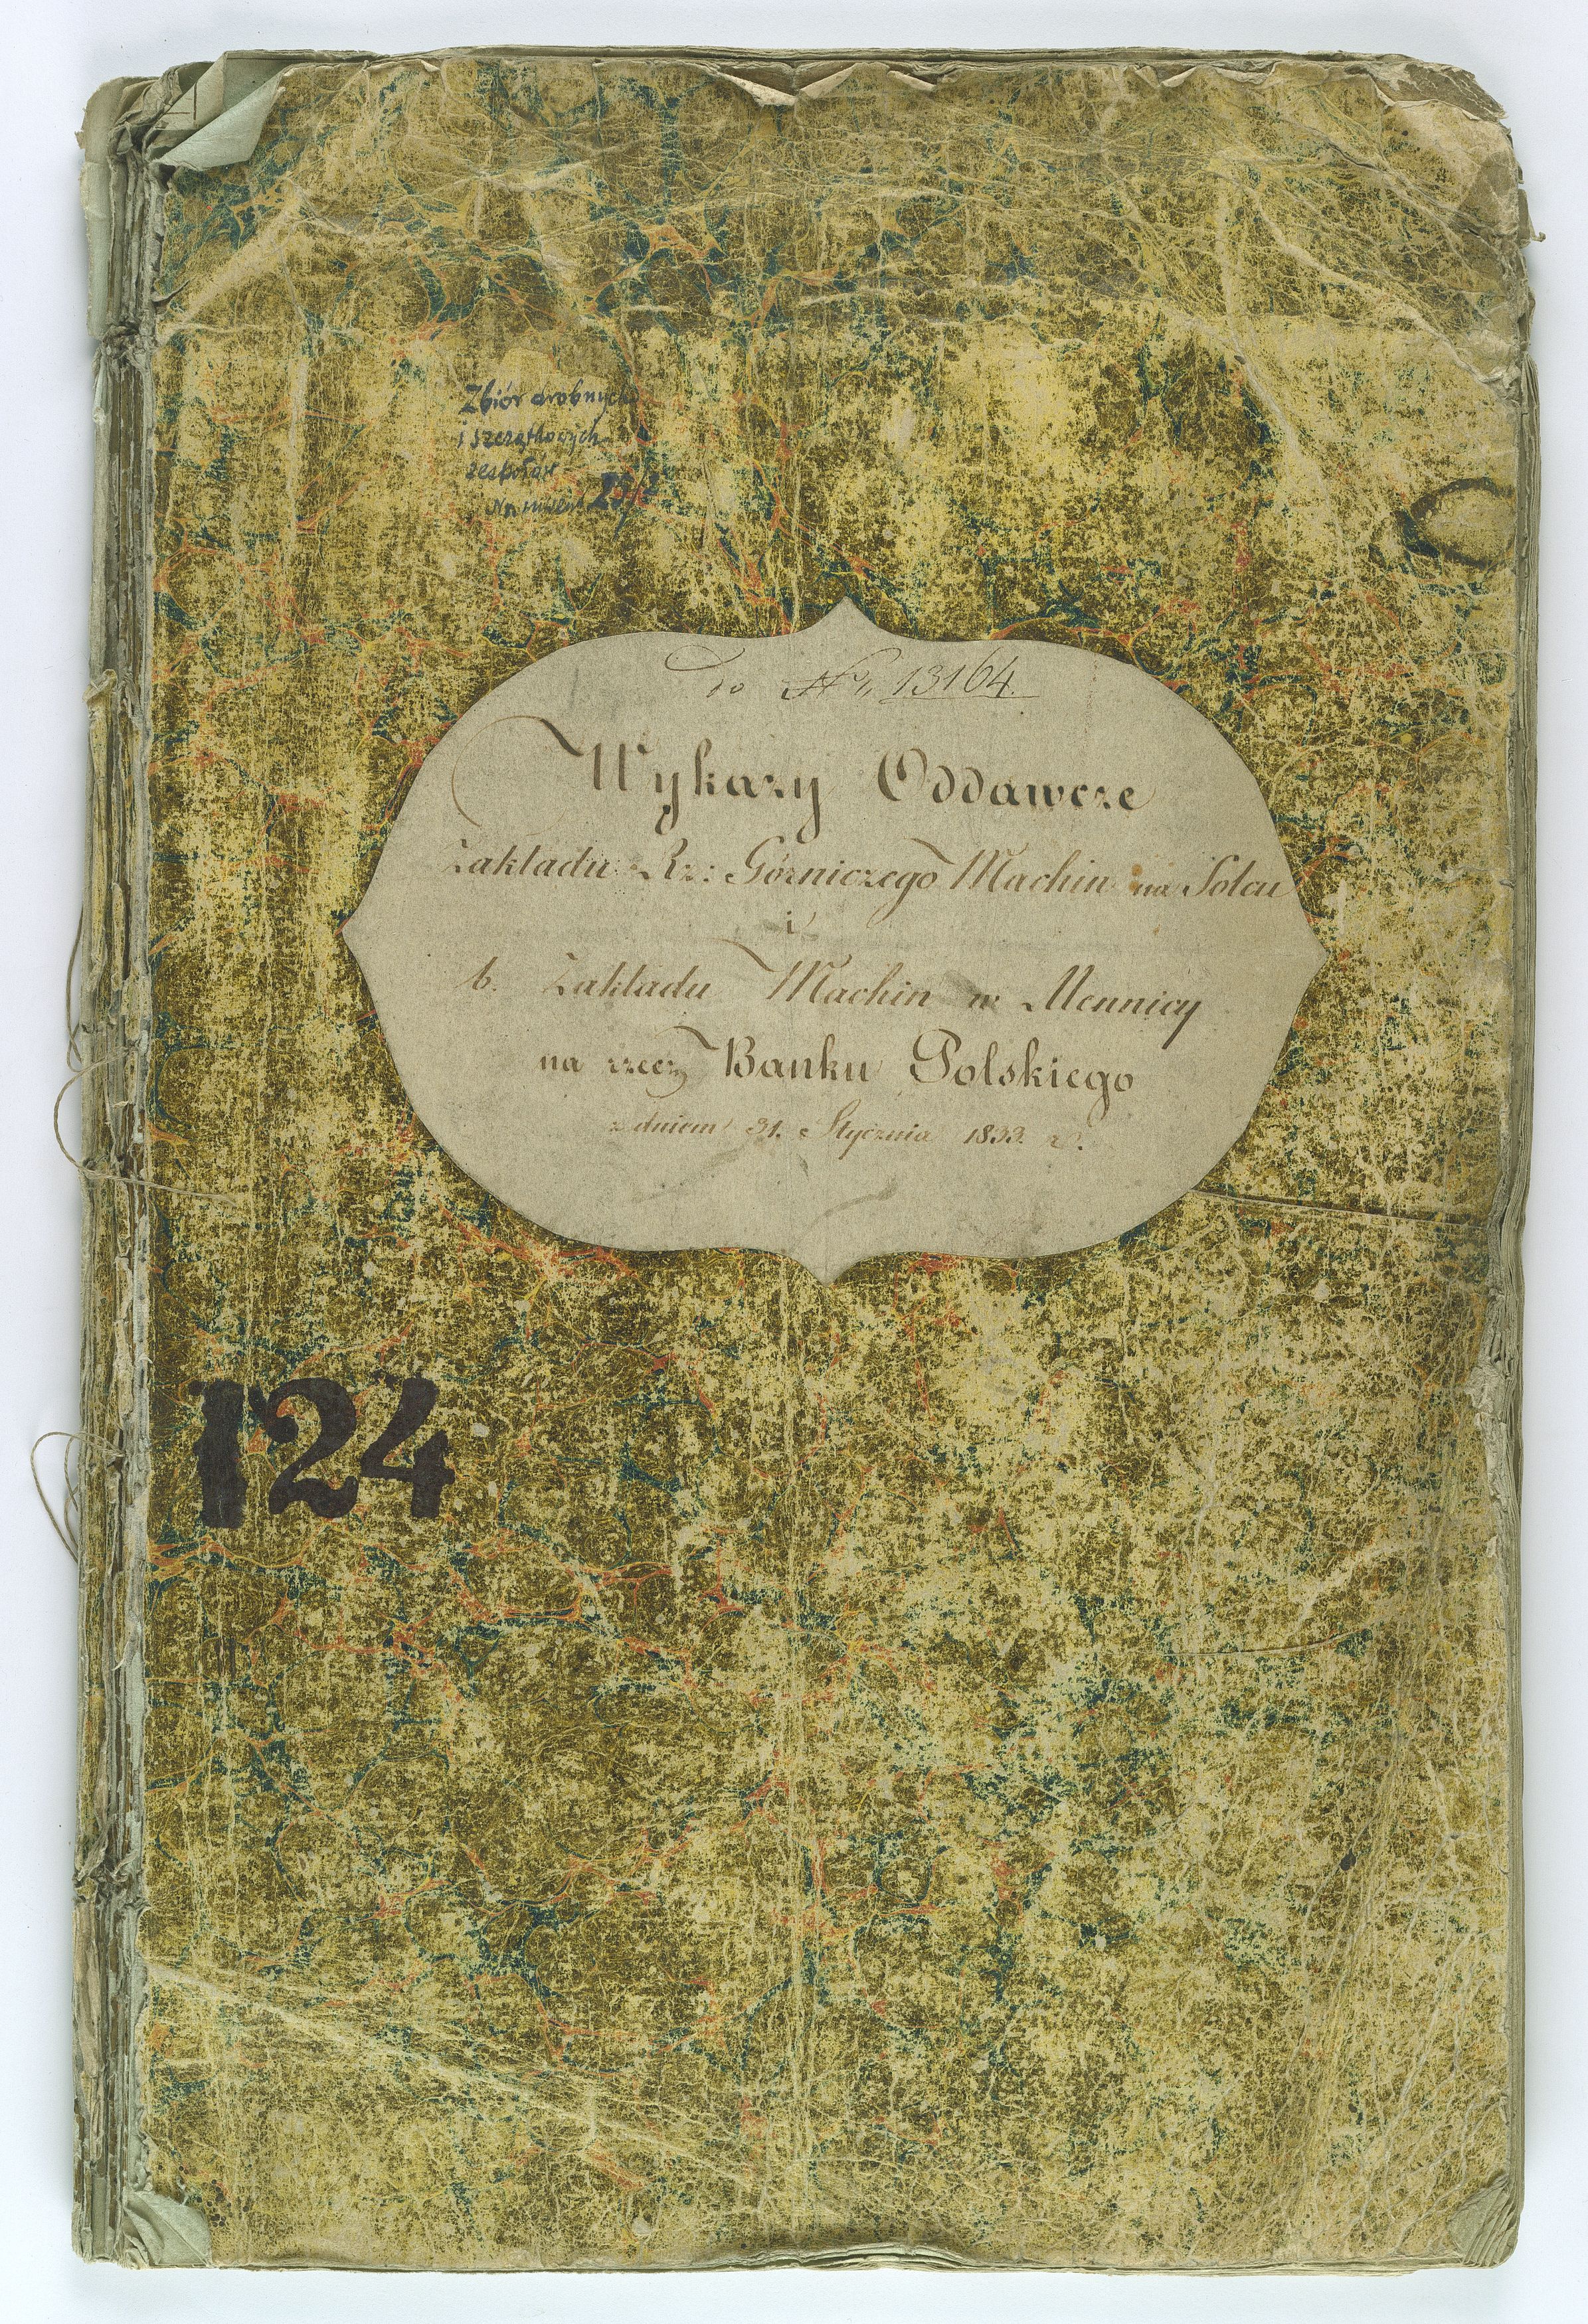 Zbiór drobnych
i szczątkowych
zespołów
Nr inwent
Do Nr 13164.
Wykazy Oddawcze
Zakładu Rz: Górniczego Machin na Solcu
i
b. Zakładu Machin w Mennicy
na rzecz Banku Polskiego
z dniem 31. Stycznia 1833. r.
124